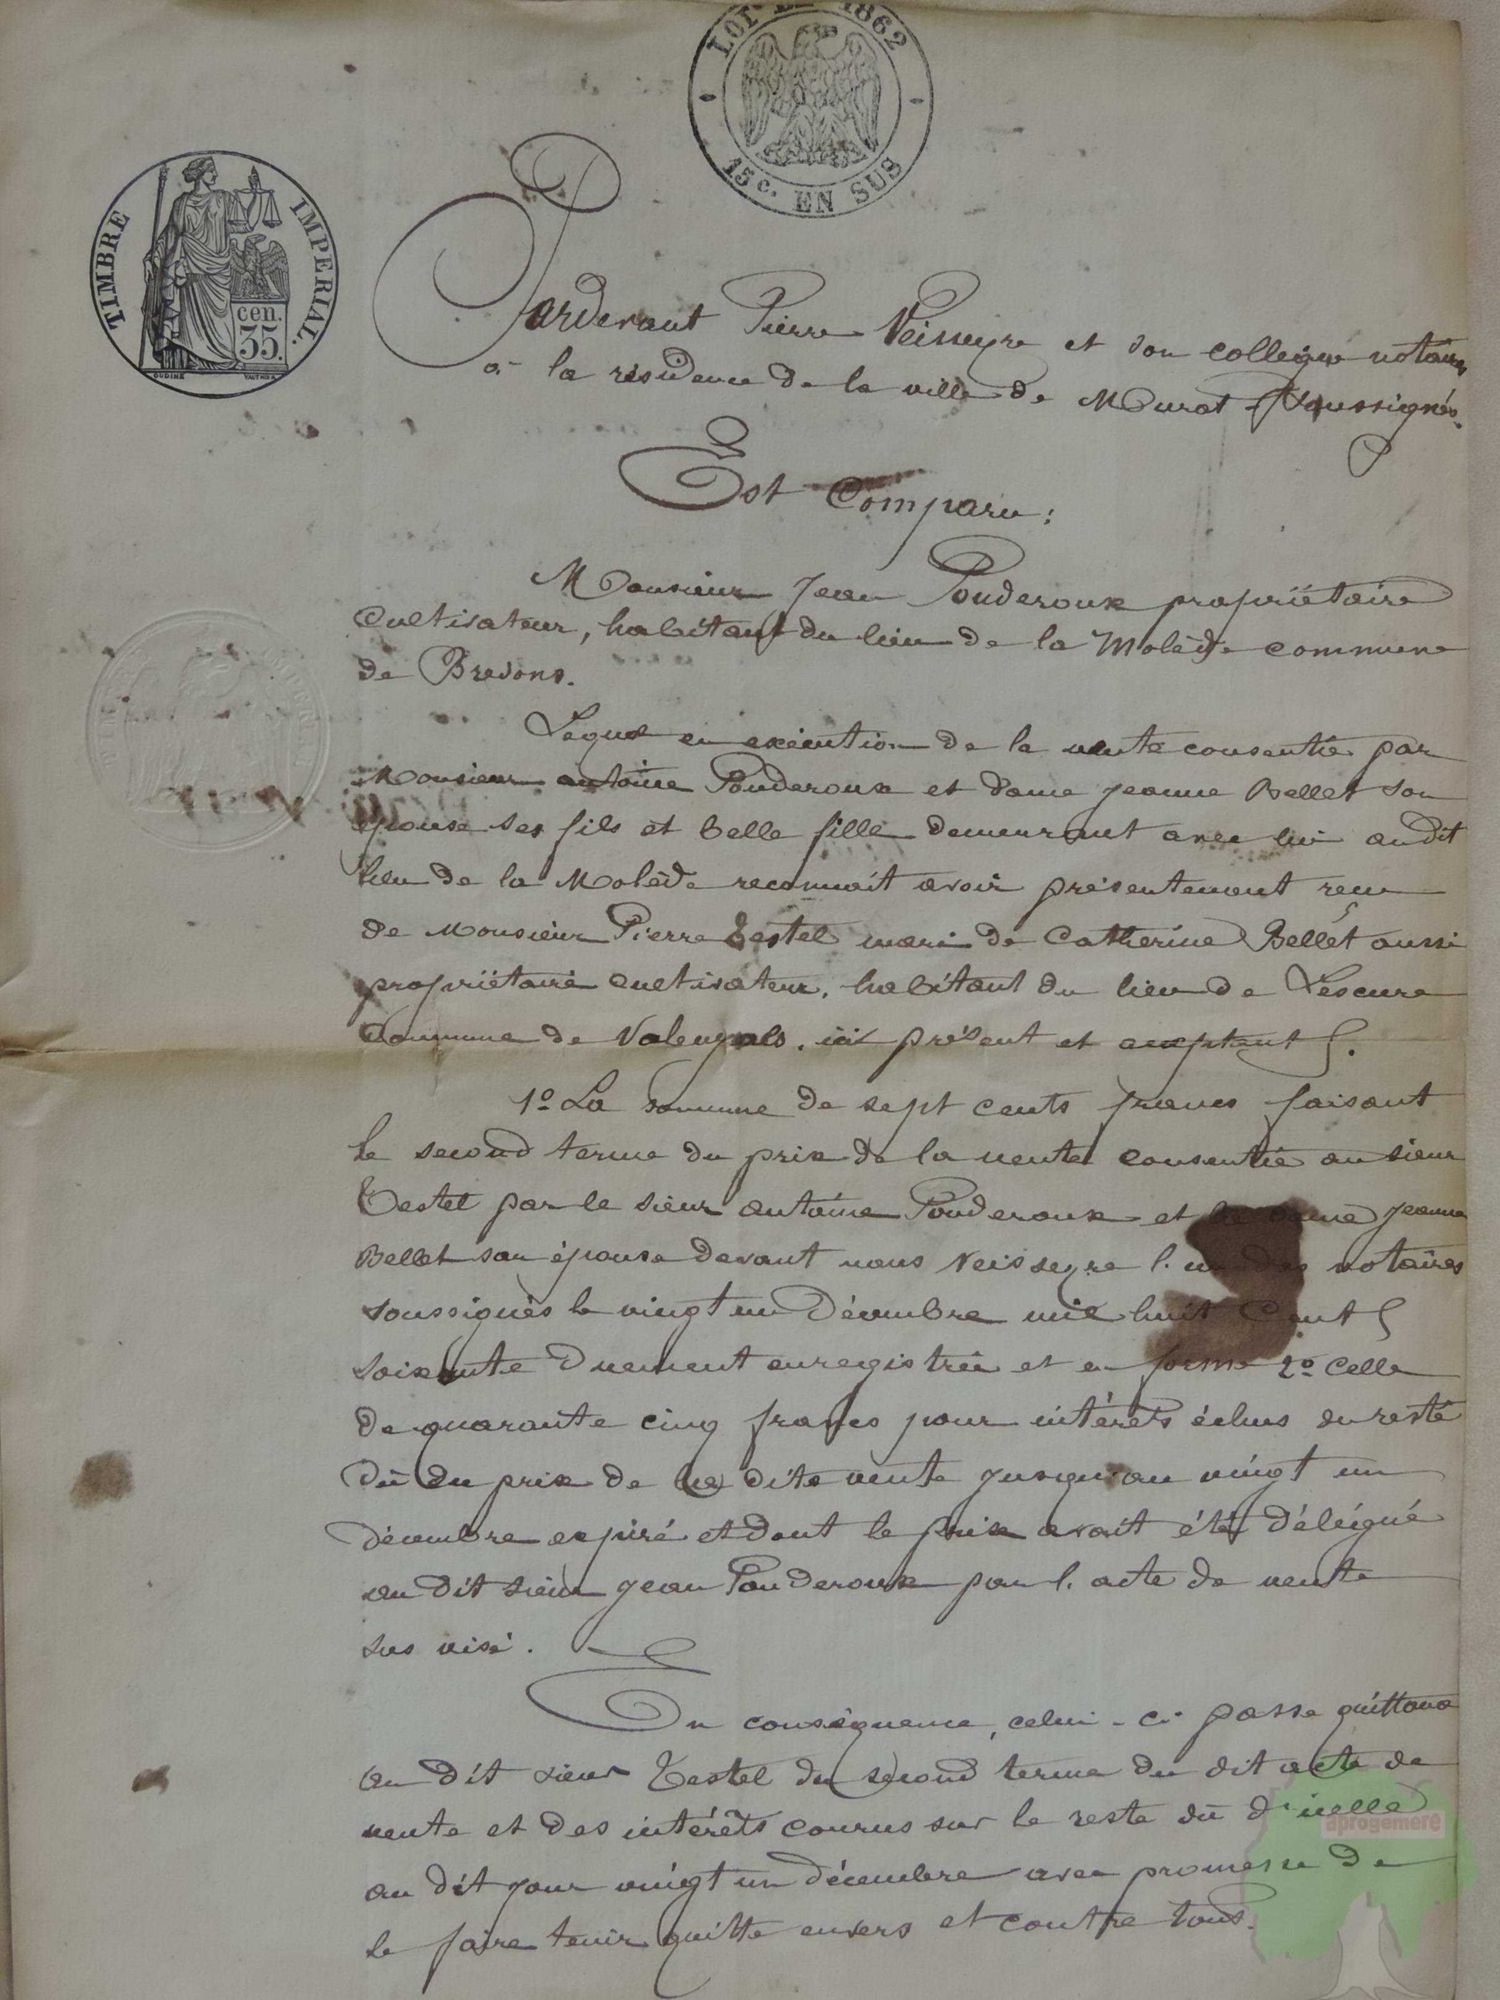 LOI DE 1862
15c. EN SUS
TIMBRE IMPERIAL.
cen.
35.
OUDINÉ
Pardevant Pierre Veisseyre et son collègue notaires
à la résidence de la ville de Murat soussignés.
Est Comparu:
Monsieur Jean Pouderoux propriétaire
Cultivateur, habitant du lieu de la Molède commune
de Bredons.
Lequel en exécution de la vente consentie par
Monsieur antoine Pouderoux et dame jeanne Bellet son
épouse ses fils et belle fille demeurant avec lui au dit
lieu de la Molède reconnait avoir présentement reçu
de Monsieur Pierre Testel mari de Catherine Bellet aussi
propriétaire cultivateur, habitant du lieu de Lescure
Commune de Valeugols. ici présent et acceptant.
1o La somme de sept cents francs faisant
le second terme du prix de la vente consentie au sieur
Testel par le sieur antoine Pouderoux et la dame jeanne
Bellet son épouse devant nous Veisseyre l'un des notaires
soussignés le vingt un Décembre mil huit Cent
soixante Duement enregistrée et en forme 2o Celle
de quarante cinq francs pour intérêts échus du reste
dû du prix de la dite vente jusqu'au vingt un
décembre expiré et dont le prix avait été délégué
au dit sieur jean Pouderoux par l'acte de vente
sus visé.
En conséquence, celui-ci passe quittance
au dit sieur Testel du second terme du dit acte de
vente et des intérêts courus sur le reste dû d'icelle
au dit jour vingt un décembre avec promesse de
le faire tenir quitte envers et contre tous.
aprogemere